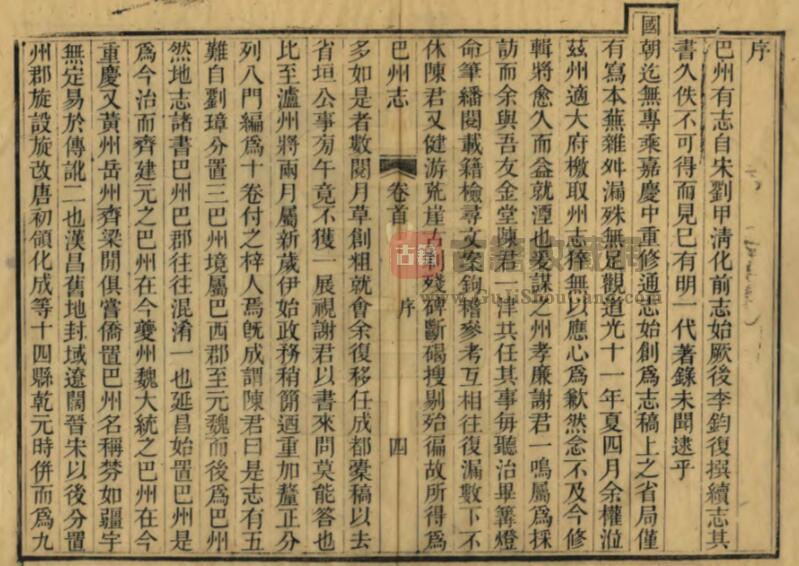 序
巴州有志自宋劉甲淸化前志始厥後李鈞復撰續志其
書久佚不可得而見巳有明一代著錄未聞逮乎
國朝迄無專乘嘉慶中重修通志始創爲志稿上之省局僅
有寫本蕪雜舛漏殊無足觀道光十一年夏四月余權涖
茲州適大府檄取州志猝無以應心爲歉然念不及今修
輯將愈久而益就湮也爰謀之州孝廉謝君一鳴屬爲採
訪而余與吾友金堂陳君一津共任其事每聽治畢篝燈
命筆繙閱載籍檢尋文案鉤稽參考互相往復漏數下不
休陳君又健游荒崖古剎殘碑斷碣搜剔始徧故所得爲
巴州志
卷首
序
四
多如是者數閱月草創粗就會余復移任成都槖稿以去
省垣公事旁午竟不獲一展視謝君以書來問莫能答也
比至瀘州將兩月屬新歲伊始政務稍簡迺重加釐正分
列八門編爲十卷付之梓人焉旣成謂陳君曰是志有五
難自劉璋分置三巴州境屬巴西郡至元魏而後爲巴州
然地志諸書巴州巴郡往往混淆一也延昌始置巴州是
爲今治而齊建元之巴州在今夔州魏大統之巴州在今
重慶又黃州岳州齊梁閒俱嘗僑置巴州名稱棼如疆宇
無定易於傳訛二也漢昌舊地封域遼闊晉宋以後分置
州郡旋設旋改唐初領化成等十四縣乾元時併而爲九
古籍
古籍收藏网
www.GuJiShouCang.com